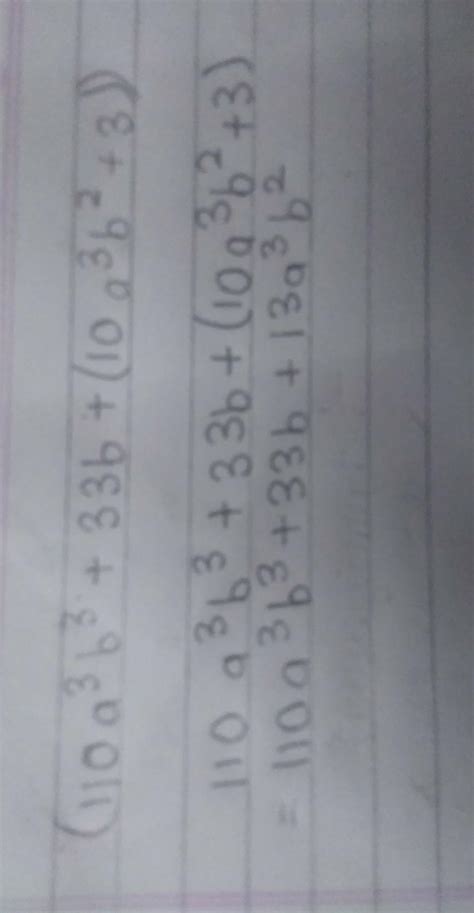 (110a³b³ + 33b + (10a³b² + 3))
110 a³b³ + 33b + (10a³b² + 3)
= 110a³b³ + 33b + 13a³b²